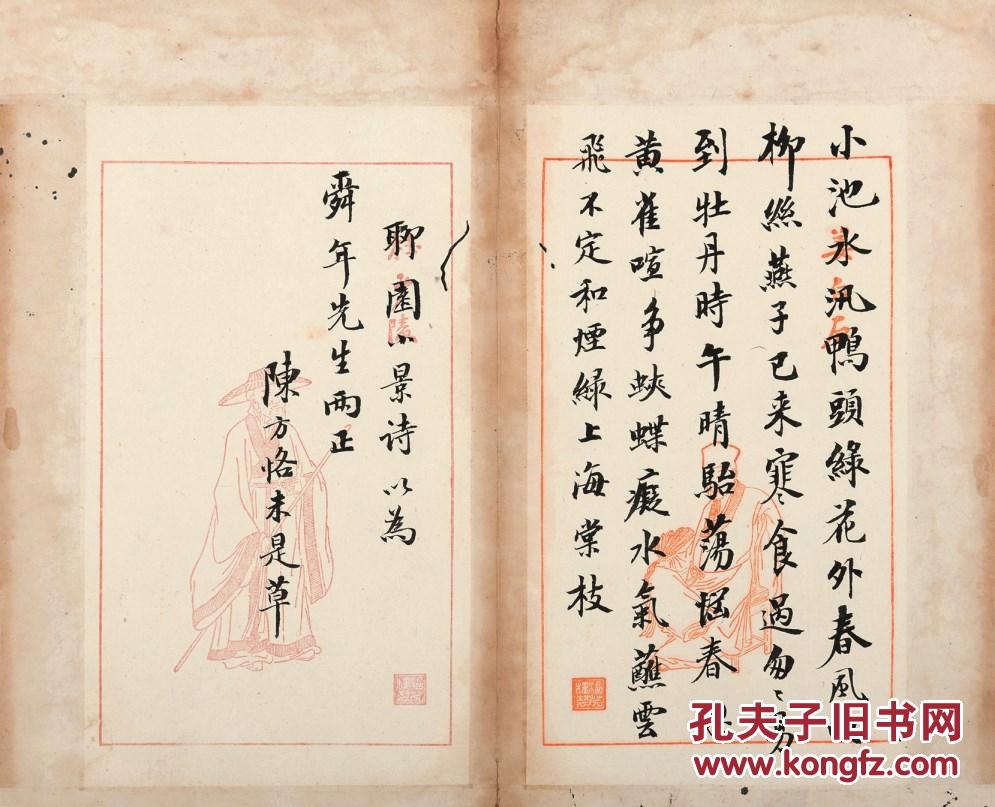 小池氷汎鴨頭綠花外春風
柳絲燕子已来寒食過匆〻
到牡丹時午晴駘蕩惱春
黄雀喧争蛺蝶癡水氣蘸雲
飛不定和煙綠上海棠枝
聊園小景诗以為
舜年先生兩正
陳方恪未是草
孔夫子旧书网
www.kongfz.com